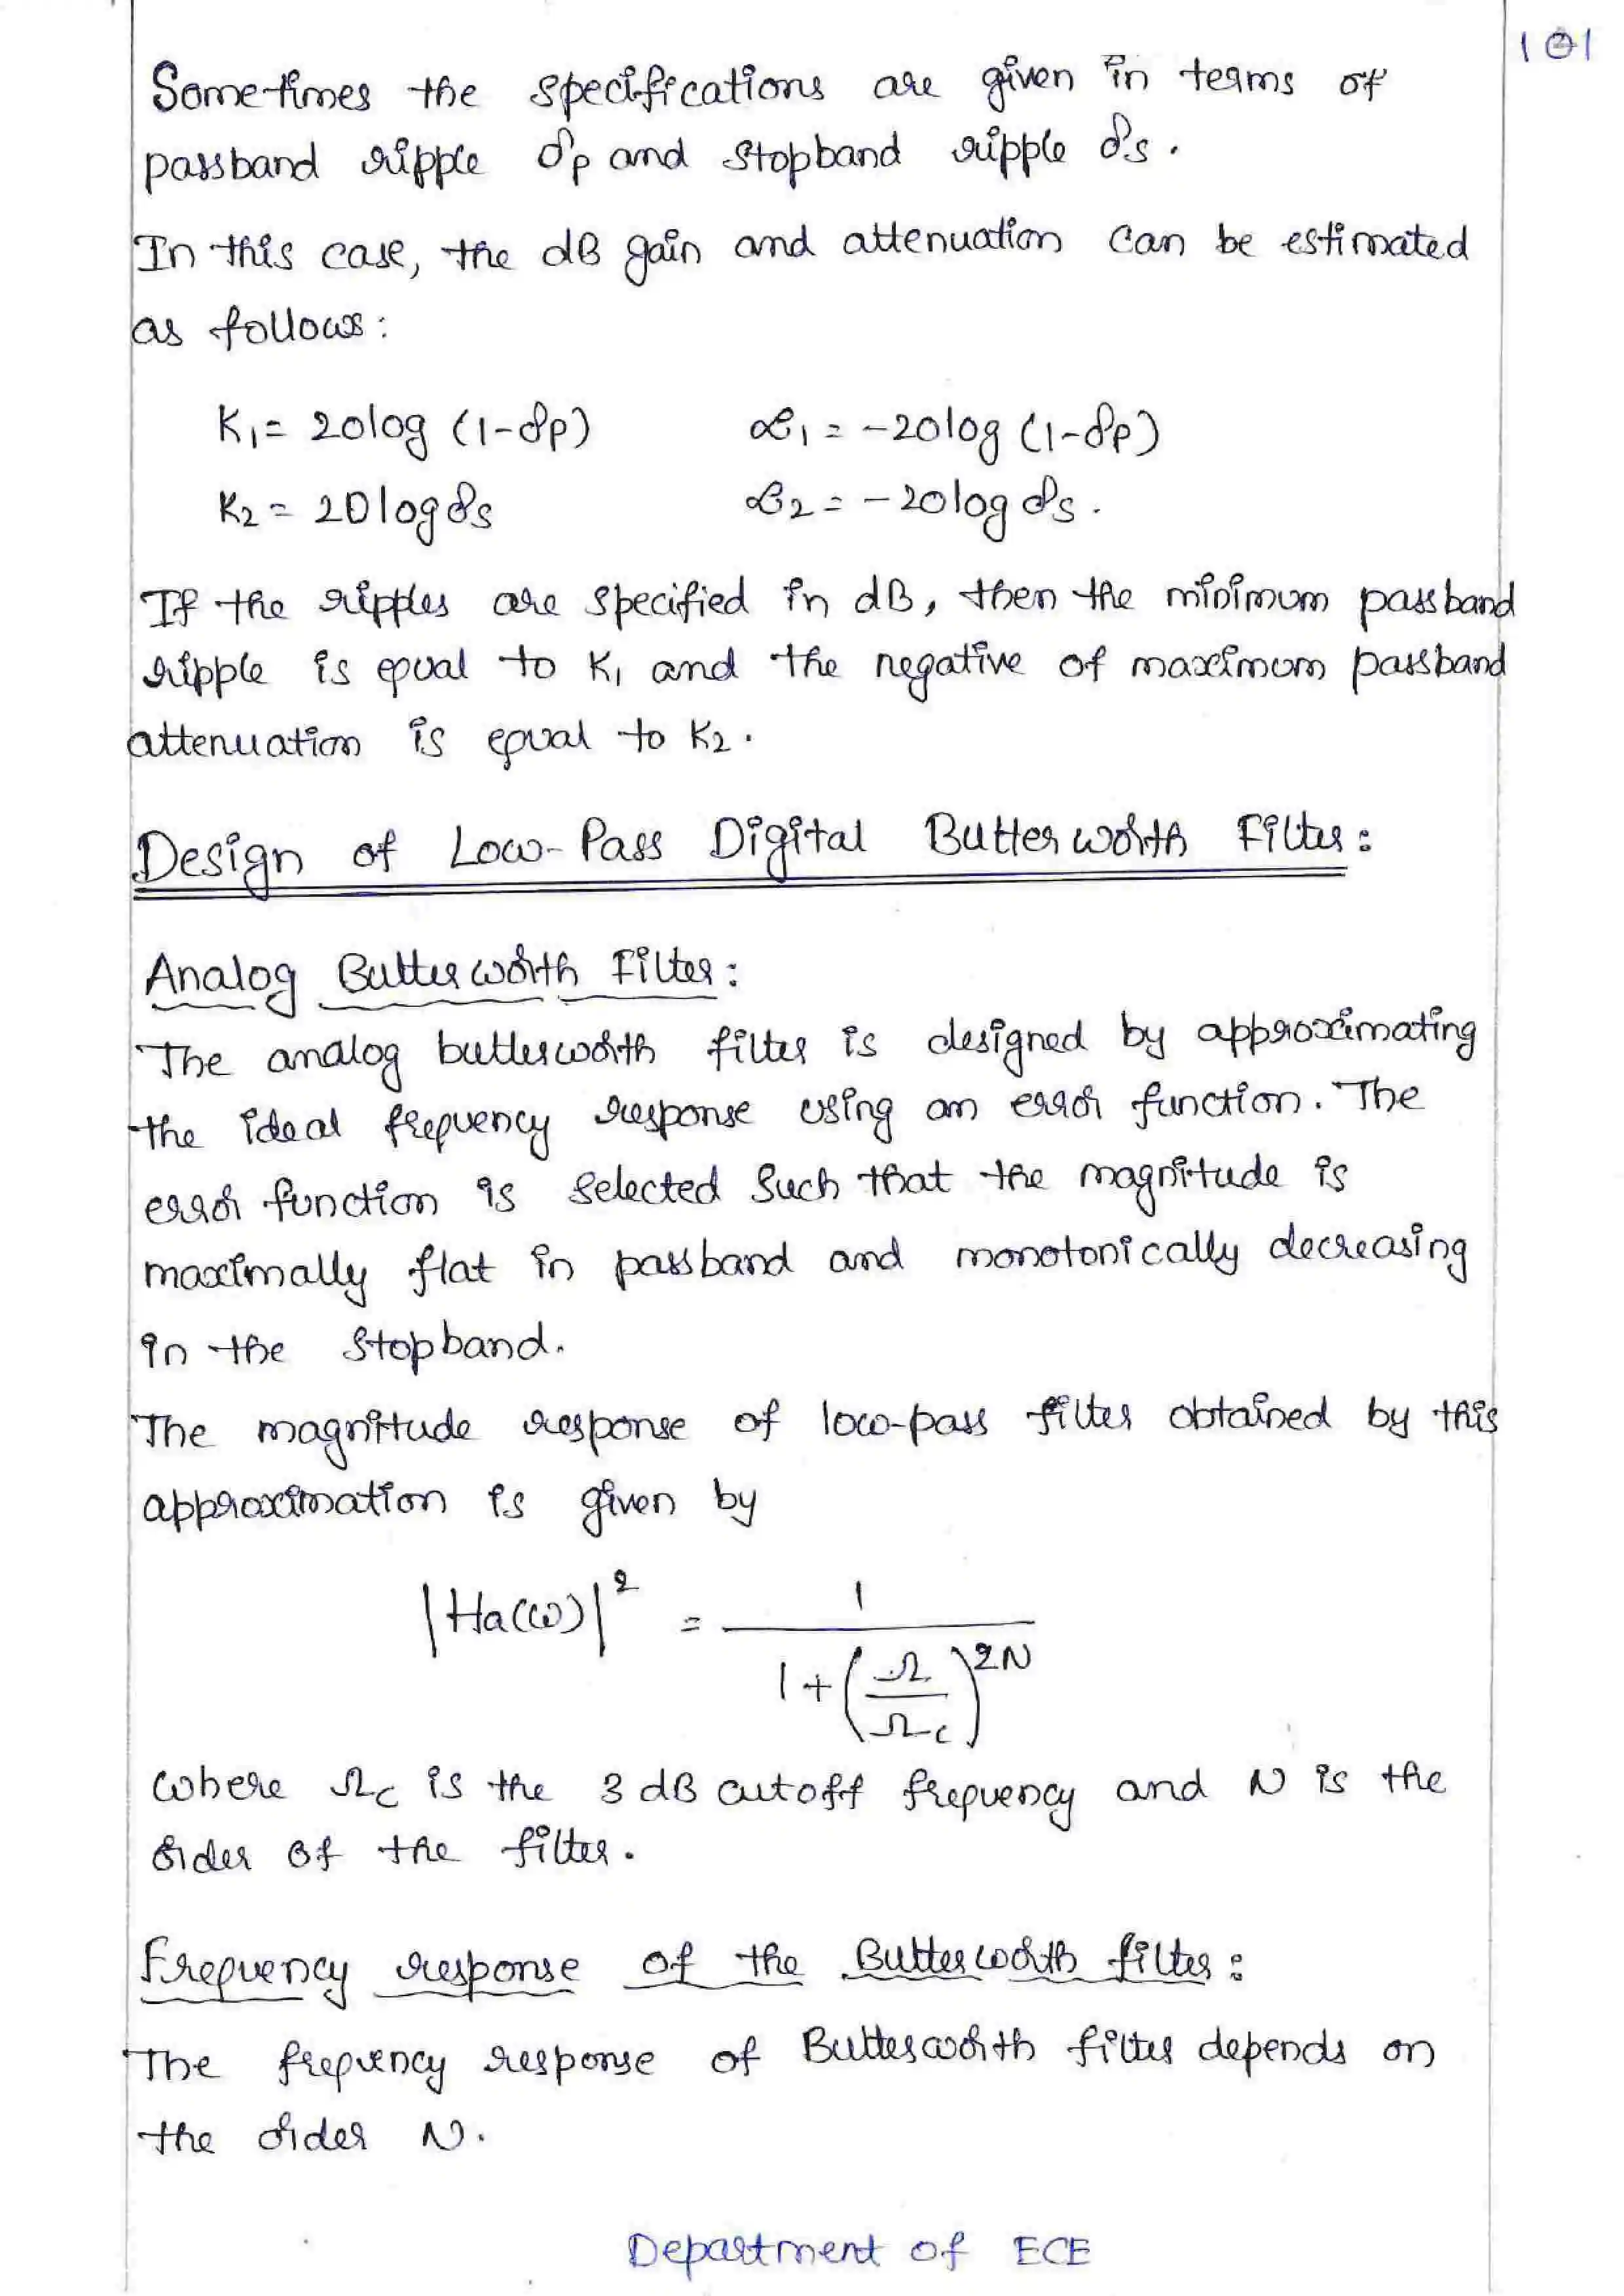 101
Sometimes the specifications are given in terms of
passband ripple δp and stopband ripple δs.
In this case, the dB gain and attenuation can be estimated
as follows:
K₁ = 20log (1-δp) α₁ = -20log (1-δp)
K₂ = 20logδs α₂ = -20logδs.
If the ripples are specified in dB, then the minimum passband
ripple is equal to K₁ and the negative of maximum passband
attenuation is equal to K₂.
Design of Low-Pass Digital Butterworth Filter:
Analog Butterworth Filter:
The analog butterworth filter is designed by approximating
the ideal frequency response using an error function. The
error function is selected such that the magnitude is
maximally flat in passband and monotonically decreasing
in the stopband.
The magnitude response of low-pass filter obtained by this
approximation is given by
|Ha(ω)|² = 1 / (1 + (Ω/Ωc)^2N)
where Ωc is the 3 dB cutoff frequency and N is the
order of the filter.
Frequency response of the Butterworth filter:
The frequency response of Butterworth filter depends on
the order N.
Department of ECE